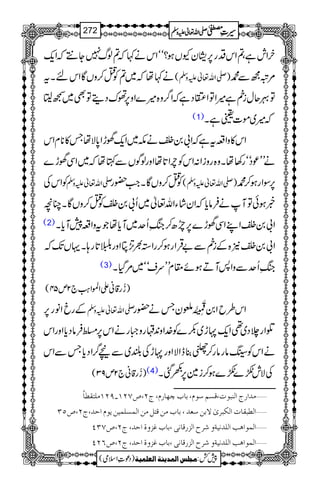 سیرتِ مصطفیٰ صلی اللہ تعالیٰ علیہ وسلم 272
خراش ہے، تم اس قدر پریشان کیوں ہو؟“ اس نے کہا کہ تم لوگ نہیں جانتے کہ ایک
مرتبہ مجھ سے محمد (صلی اللہ تعالیٰ علیہ وسلم) نے کہا تھا کہ میں تم کو قتل کروں گا اس لئے۔ یہ
تو بہر حال زخم ہے میرا تو اعتقاد ہے کہ اگر وہ میرے اوپر تھوک دیتے تو بھی میں سمجھ لیتا
کہ میری موت یقینی ہے۔ (1)
اس کا واقعہ یہ ہے کہ ابی بن خلف نے مکہ میں ایک گھوڑا پالا تھا جس کا نام اس
نے ”عود“ رکھا تھا۔ وہ روزانہ اس کو چراتا تھا اور لوگوں سے کہتا تھا کہ میں اسی گھوڑے
پر سوار ہو کر محمد (صلی اللہ تعالیٰ علیہ وسلم) کو قتل کروں گا۔ جب حضور صلی اللہ تعالیٰ علیہ وسلم کو اس کی
خبر ہوئی تو آپ نے فرمایا کہ ان شاء اللہ تعالیٰ میں ابی بن خلف کو قتل کروں گا۔ چنانچہ
ابی بن خلف اپنے اسی گھوڑے پر چڑھ کر جنگ اُحد میں آیا تھا جو یہ واقعہ پیش آیا۔ (2)
ابی بن خلف نیزہ کے زخم سے بے قرار ہو کر راستہ بھر تڑپتا اور بلبلاتا رہا۔ یہاں تک کہ
جنگ اُحد سے واپس آتے ہوئے مقام ”سرف“ میں مر گیا۔ (3)
(زرقانی علی المواہب ج۲ ص۴۵)
اس طرح ابن قمیئہ ملعون جس نے حضور صلی اللہ تعالیٰ علیہ وسلم کے رخ انور پر
تلوار چلا دی تھی ایک پہاڑی بکرے کو خداوند قہار و جبار نے اس پر مسلط فرما دیا اور اس
نے اس کو سینگ مار مار کر چھلنی بنا ڈالا اور پہاڑ کی بلندی سے نیچے گرا دیا جس سے اس
کی لاش ٹکڑے ٹکڑے ہو کر زمین پر بکھر گئی۔ (4) (زرقانی ج۲ ص۳۹)
......مدارج النبوت،قسم سوم، باب چهارم، ج۲،ص۱۲۷۔۱۲۹ملتقطاً
......الطبقات الكبرى لابن سعد ، باب من قتل من المسلمين يوم احد،ج۲،ص۳۵
......المواهب اللدنية و شرح الزرقانى ،باب غزوة احد، ج۲،ص۴۳۷
......المواهب اللدنية و شرح الزرقانى ،باب غزوة احد، ج۲،ص۴۲۶
پیش کش: مجلس المدینة العلمیة (دعوتِ اسلامی)